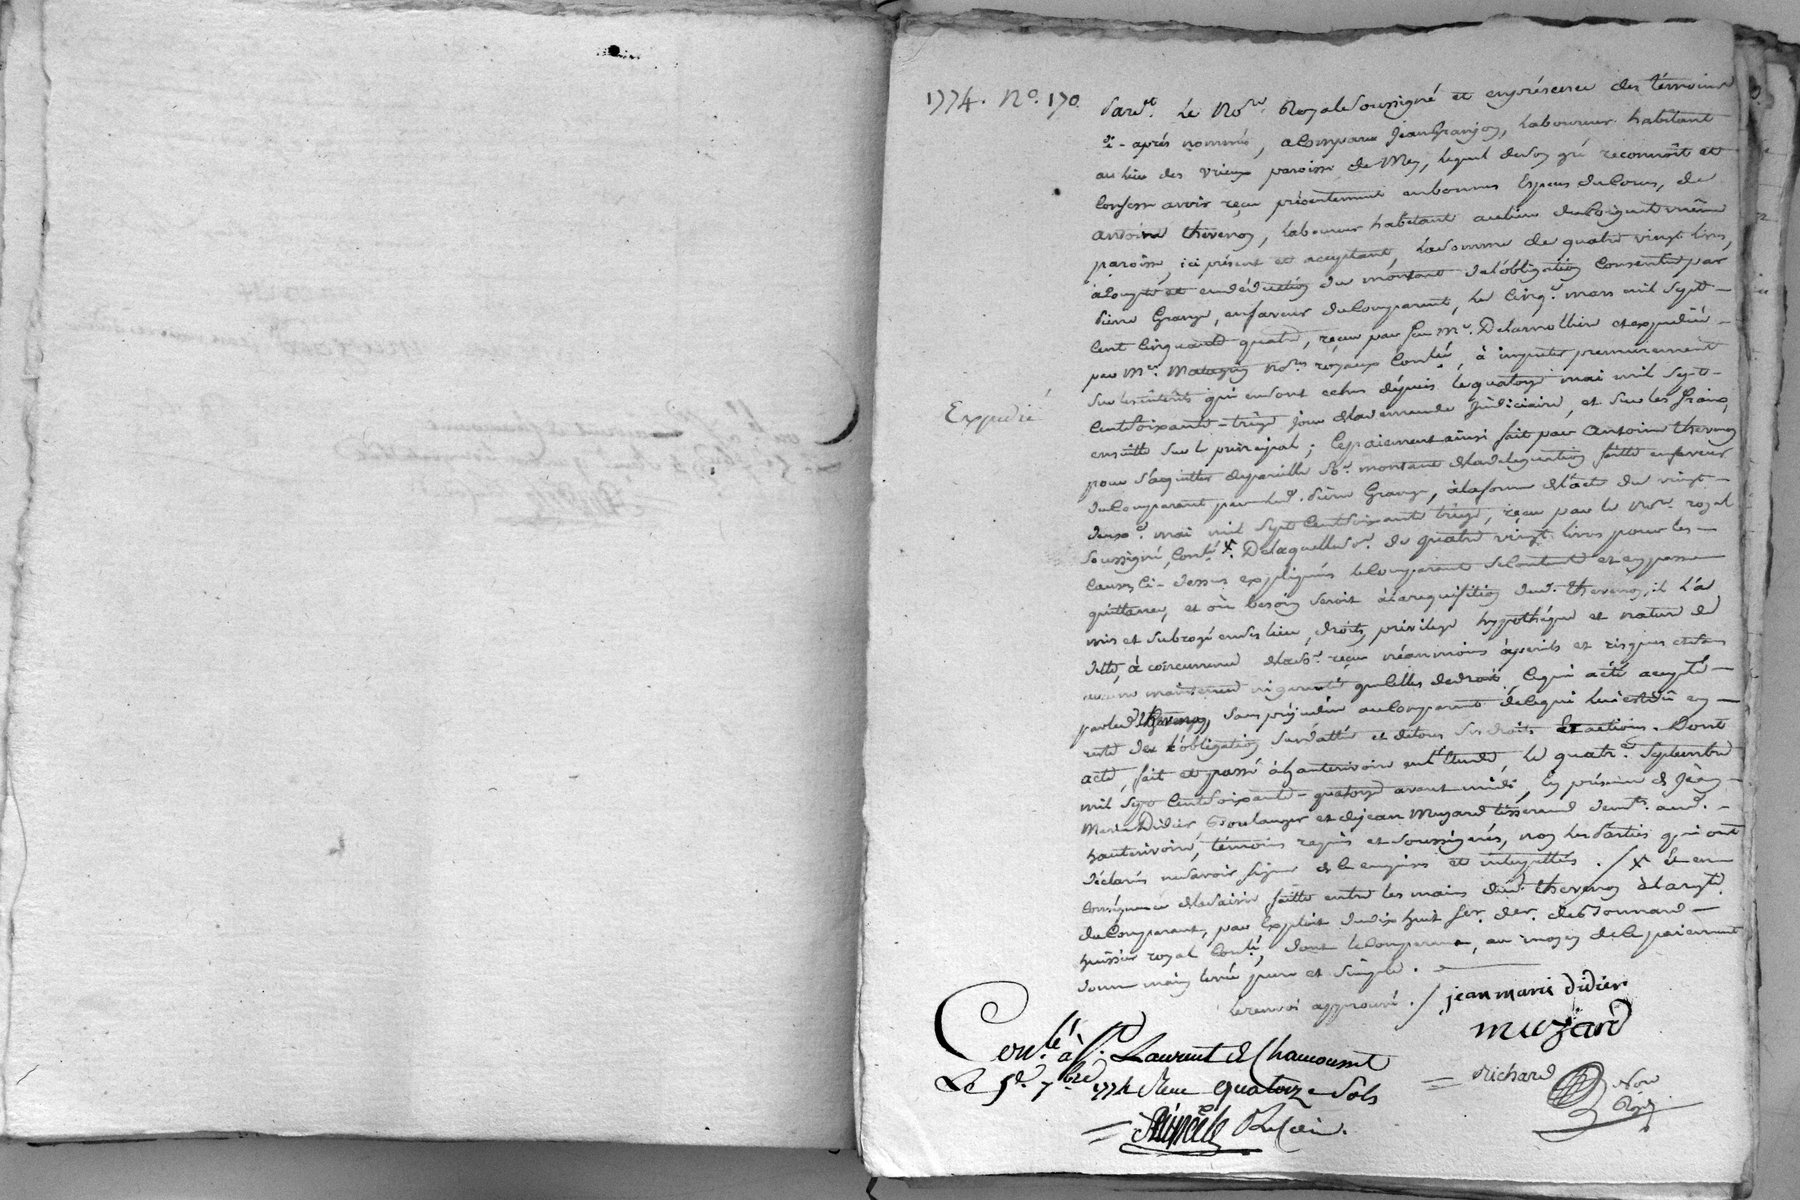 1774. No. 170
Pardt. Le Nore. Royal soussigné et en présence des témoins
ci-après nommés, a comparu Jean Granjon, laboureur habitant
au lieu des vrieux paroisse de Mey, lequel de son gré reconnoît et
confesse avoir reçu présentement en bonnes Espèces du Cours, de
Antoine thevenon, laboureur habitant au lieu du même
paroisse, ici présent et acceptant, la somme de quatre vingt livres,
à Compte et en déduction du montant de l'obligation Consentie par
Pierre Grange, en faveur du Comparant, le Cinqe. mars mil sept-
Cent Cinquante quatre, reçue par feu Me. Delarmollière et expédiée-
par Me. nores. royaux Conlée, à imputer premièrement
sur les intérêts qui en sont echus dépuis le quatorze mai mil sept-
Cent soixante-trèize jour de la demande Judiciaire, et sur les fraix,
ensuitte sur le principal; Ce paiement ainsi fait par Antoine thevenon
pour s'acquitter de pareille se. montant de la délégation faitte en faveur
du Comparant par led. Pierre Grange, à la forme de l'acte du vingt-
deuxe. mai mil sept Cent soixante trèize, reçu par le Nore. royal
soussigné, Conlé. x. De laquelle se. de quatre vingt livres pour les-
causes Ci-dessus expliquées le Comparant se Contente et en passe
quittance, et où besoin seroit à la requisition dud. thevenon, il l'a
mis et subrogé en ses lieu, droits, privilège hypothèque et nature de
dette, à concurrence de lad. se. reçue néanmoins à périls et risques et sans
aucune maintenue ni garantie que Celles de droit, Ce qui a été accepté-
par led. thevenon, sans préjudice au Comparant de Ce qui lui est dû en-
reste de l'obligation susdattée et de tous ses droits et actions. Dont
acte, fait et passé à hauterivoire en l'Etude, le quatre. septembre
mil sept Cent soixante-quatorze avant midi, En présence de Jean-
Marie Didier Boulanger et de jean Muzard tisserand demts. aud.-
hauterivoire, témoins requis et soussignés, non les Parties qui ont
déclaré ne savoir signer de Ce enquises et interpellées. / x Et en
Conséquence de la saisie faitte entre les mains dud. thevenon à la reqte.
du Comparant, par Exploit du dix huit fer. der. de Bonnard-
huissier royal Conlé, dont le Comparant, au moyen de Ce paiement
donne main levée pure et simple.
le renvoi approuvé. /
Expedié
jean marie didier
muzard
Richard
Nore
Royal
Conlé. à St. Laurent de Chamousset
Le 5e. 7bre 1774 Reçu quatorze sols